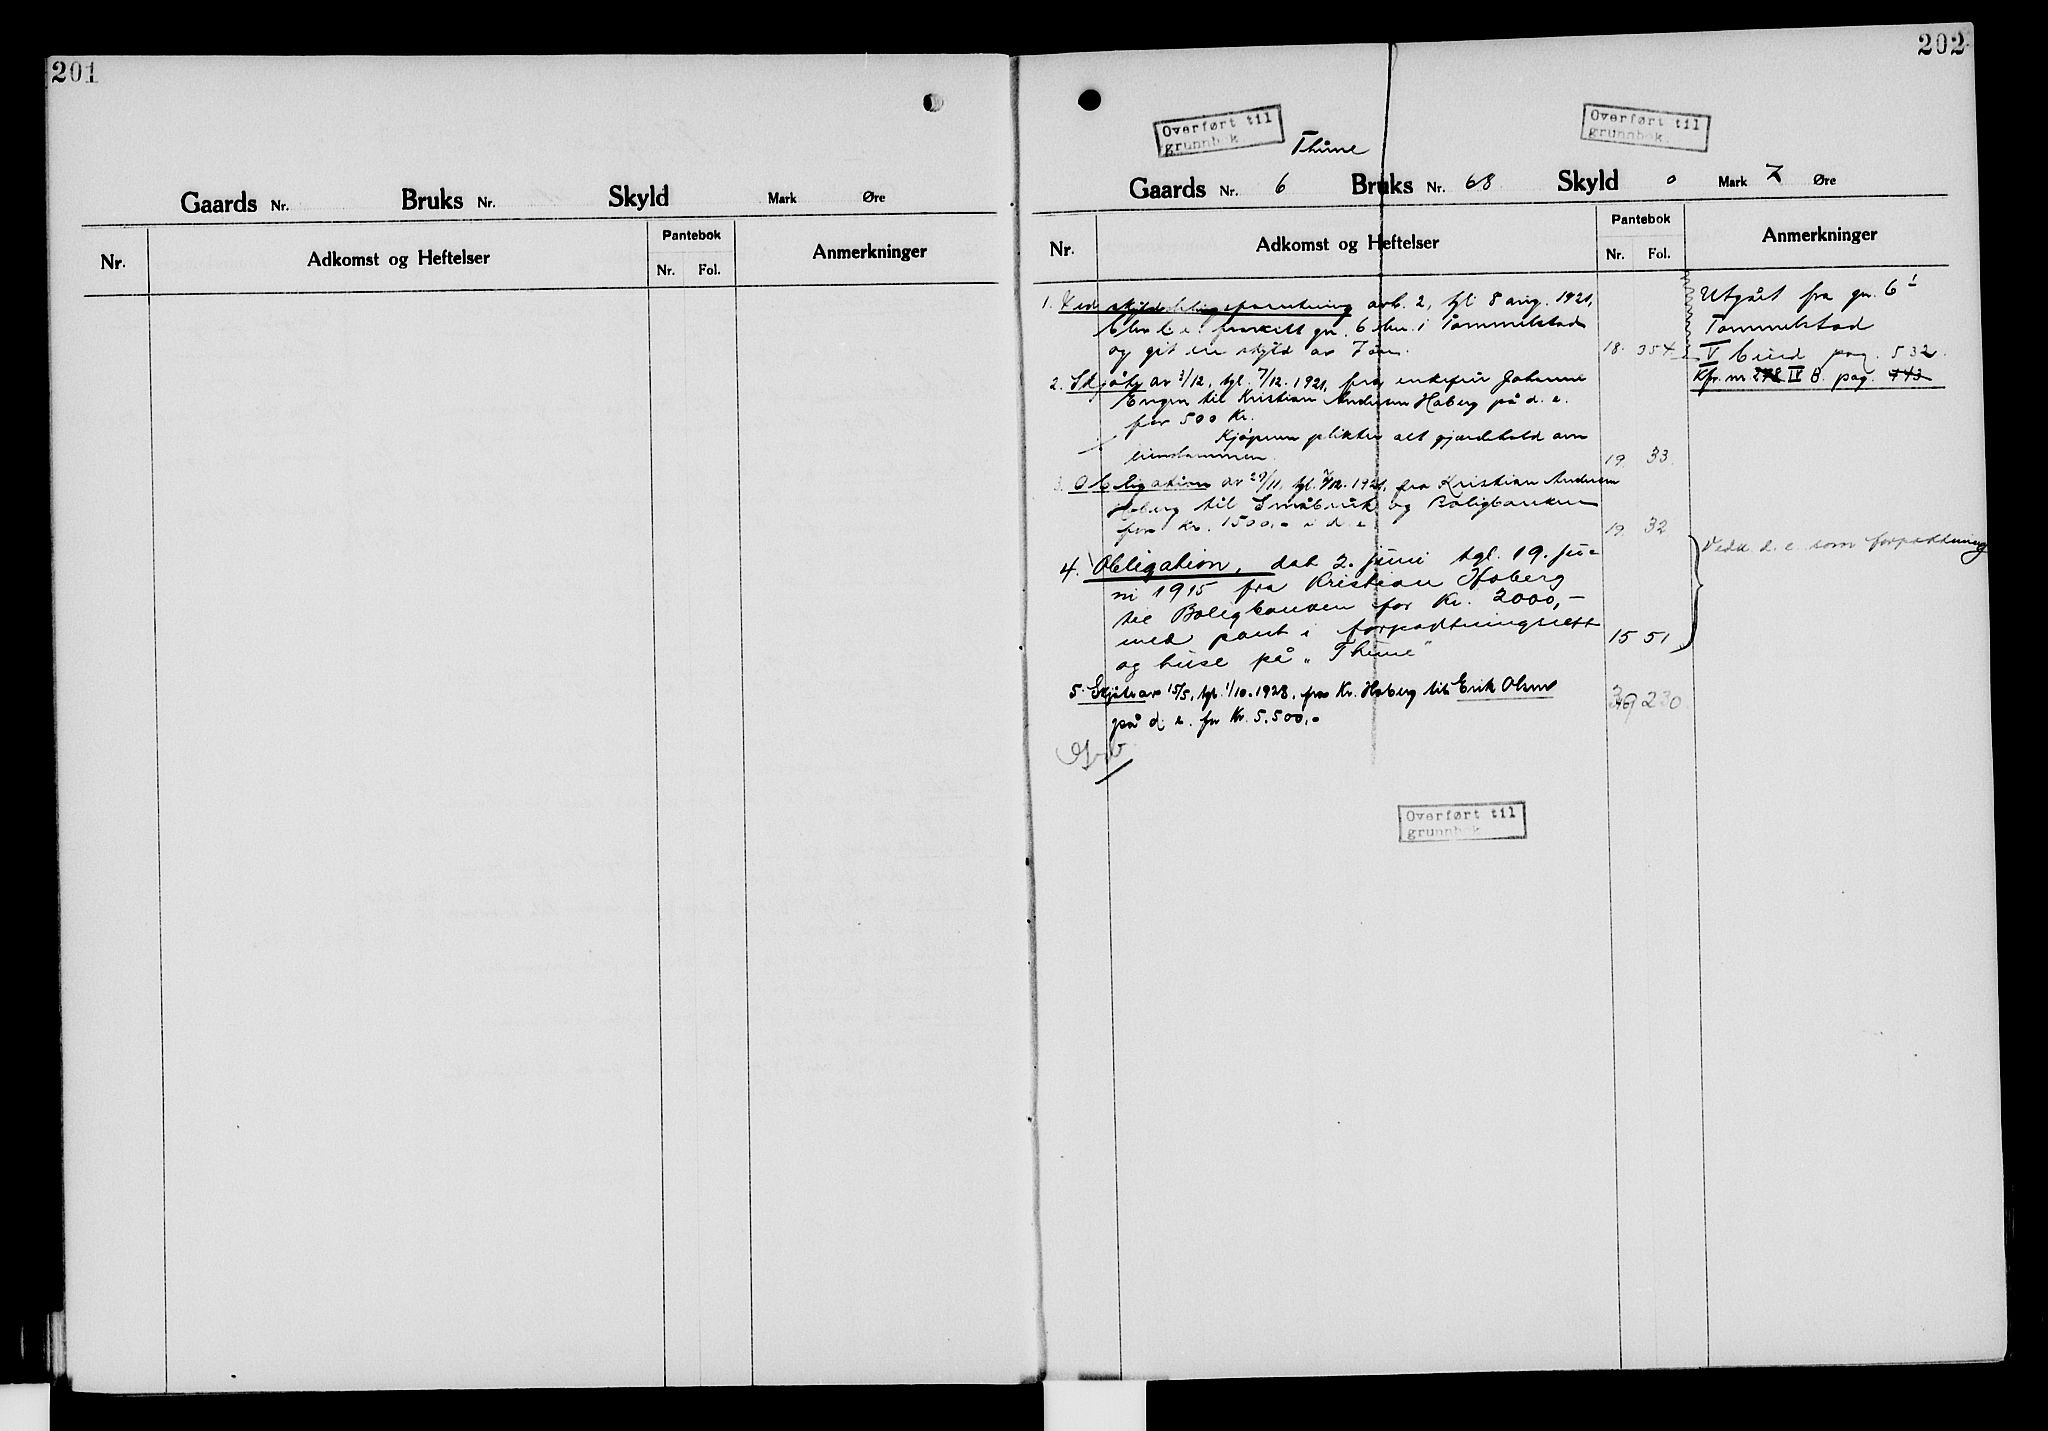 201
Gaards Nr. Bruks Nr. Skyld Mark Øre
Nr. Adkomst og Heftelser Pantebok Nr. Fol. Anmerkninger
202
Overført til
grunnbok
Overført til
grunnbok.
Thune
Gaards Nr. 6 Bruks Nr. 68 Skyld 0 Mark 7 Øre
Nr. Adkomst og Heftelser Pantebok Nr. Fol. Anmerkninger
1. Ved skylddelingsforretning avh. 2, tgl. 8 aug. 1921,
blev d. e. fraskilt gn. 6 bn. 1 Tommelstad
og git en skyld av 7 øre. 18. 354
Utgått fra gn. 6 1
Tommelstad
V bind pag. 532.
Kfr. nr. 278 IV B. pag. 443
2. Skjøte av 3/12, tgl. 7/12. 1921, fra enkefru Johanne
Engen til Kristian Andersen Hoberg på d. e.
for 500 Kr.
Kjøperen plikter alt gjærdehold om
eiendommen. 19. 33.
3. Obligation av 29/11, tgl. 7/12. 1921, fra Kristian Andersen
Hoberg til Småbruk og Boligbanken
for kr. 1500,- i d. e. 19. 32
4. Obligation, dat 2. juni tgl. 19. ju-
ni 1915 fra Kristian Hoberg
til Boligbanken for Kr. 2000,-
med pant i forpaktningsrett
og huse på "Thune" 15 51
Vedr. d. e. som forpaktning
5. Skjøte av 15/5, tgl. 1/10. 1928, fra Kr. Hoberg til Erik Olsen
på d. e. for Kr. 5.500,- 230
Overført til
grunnbok